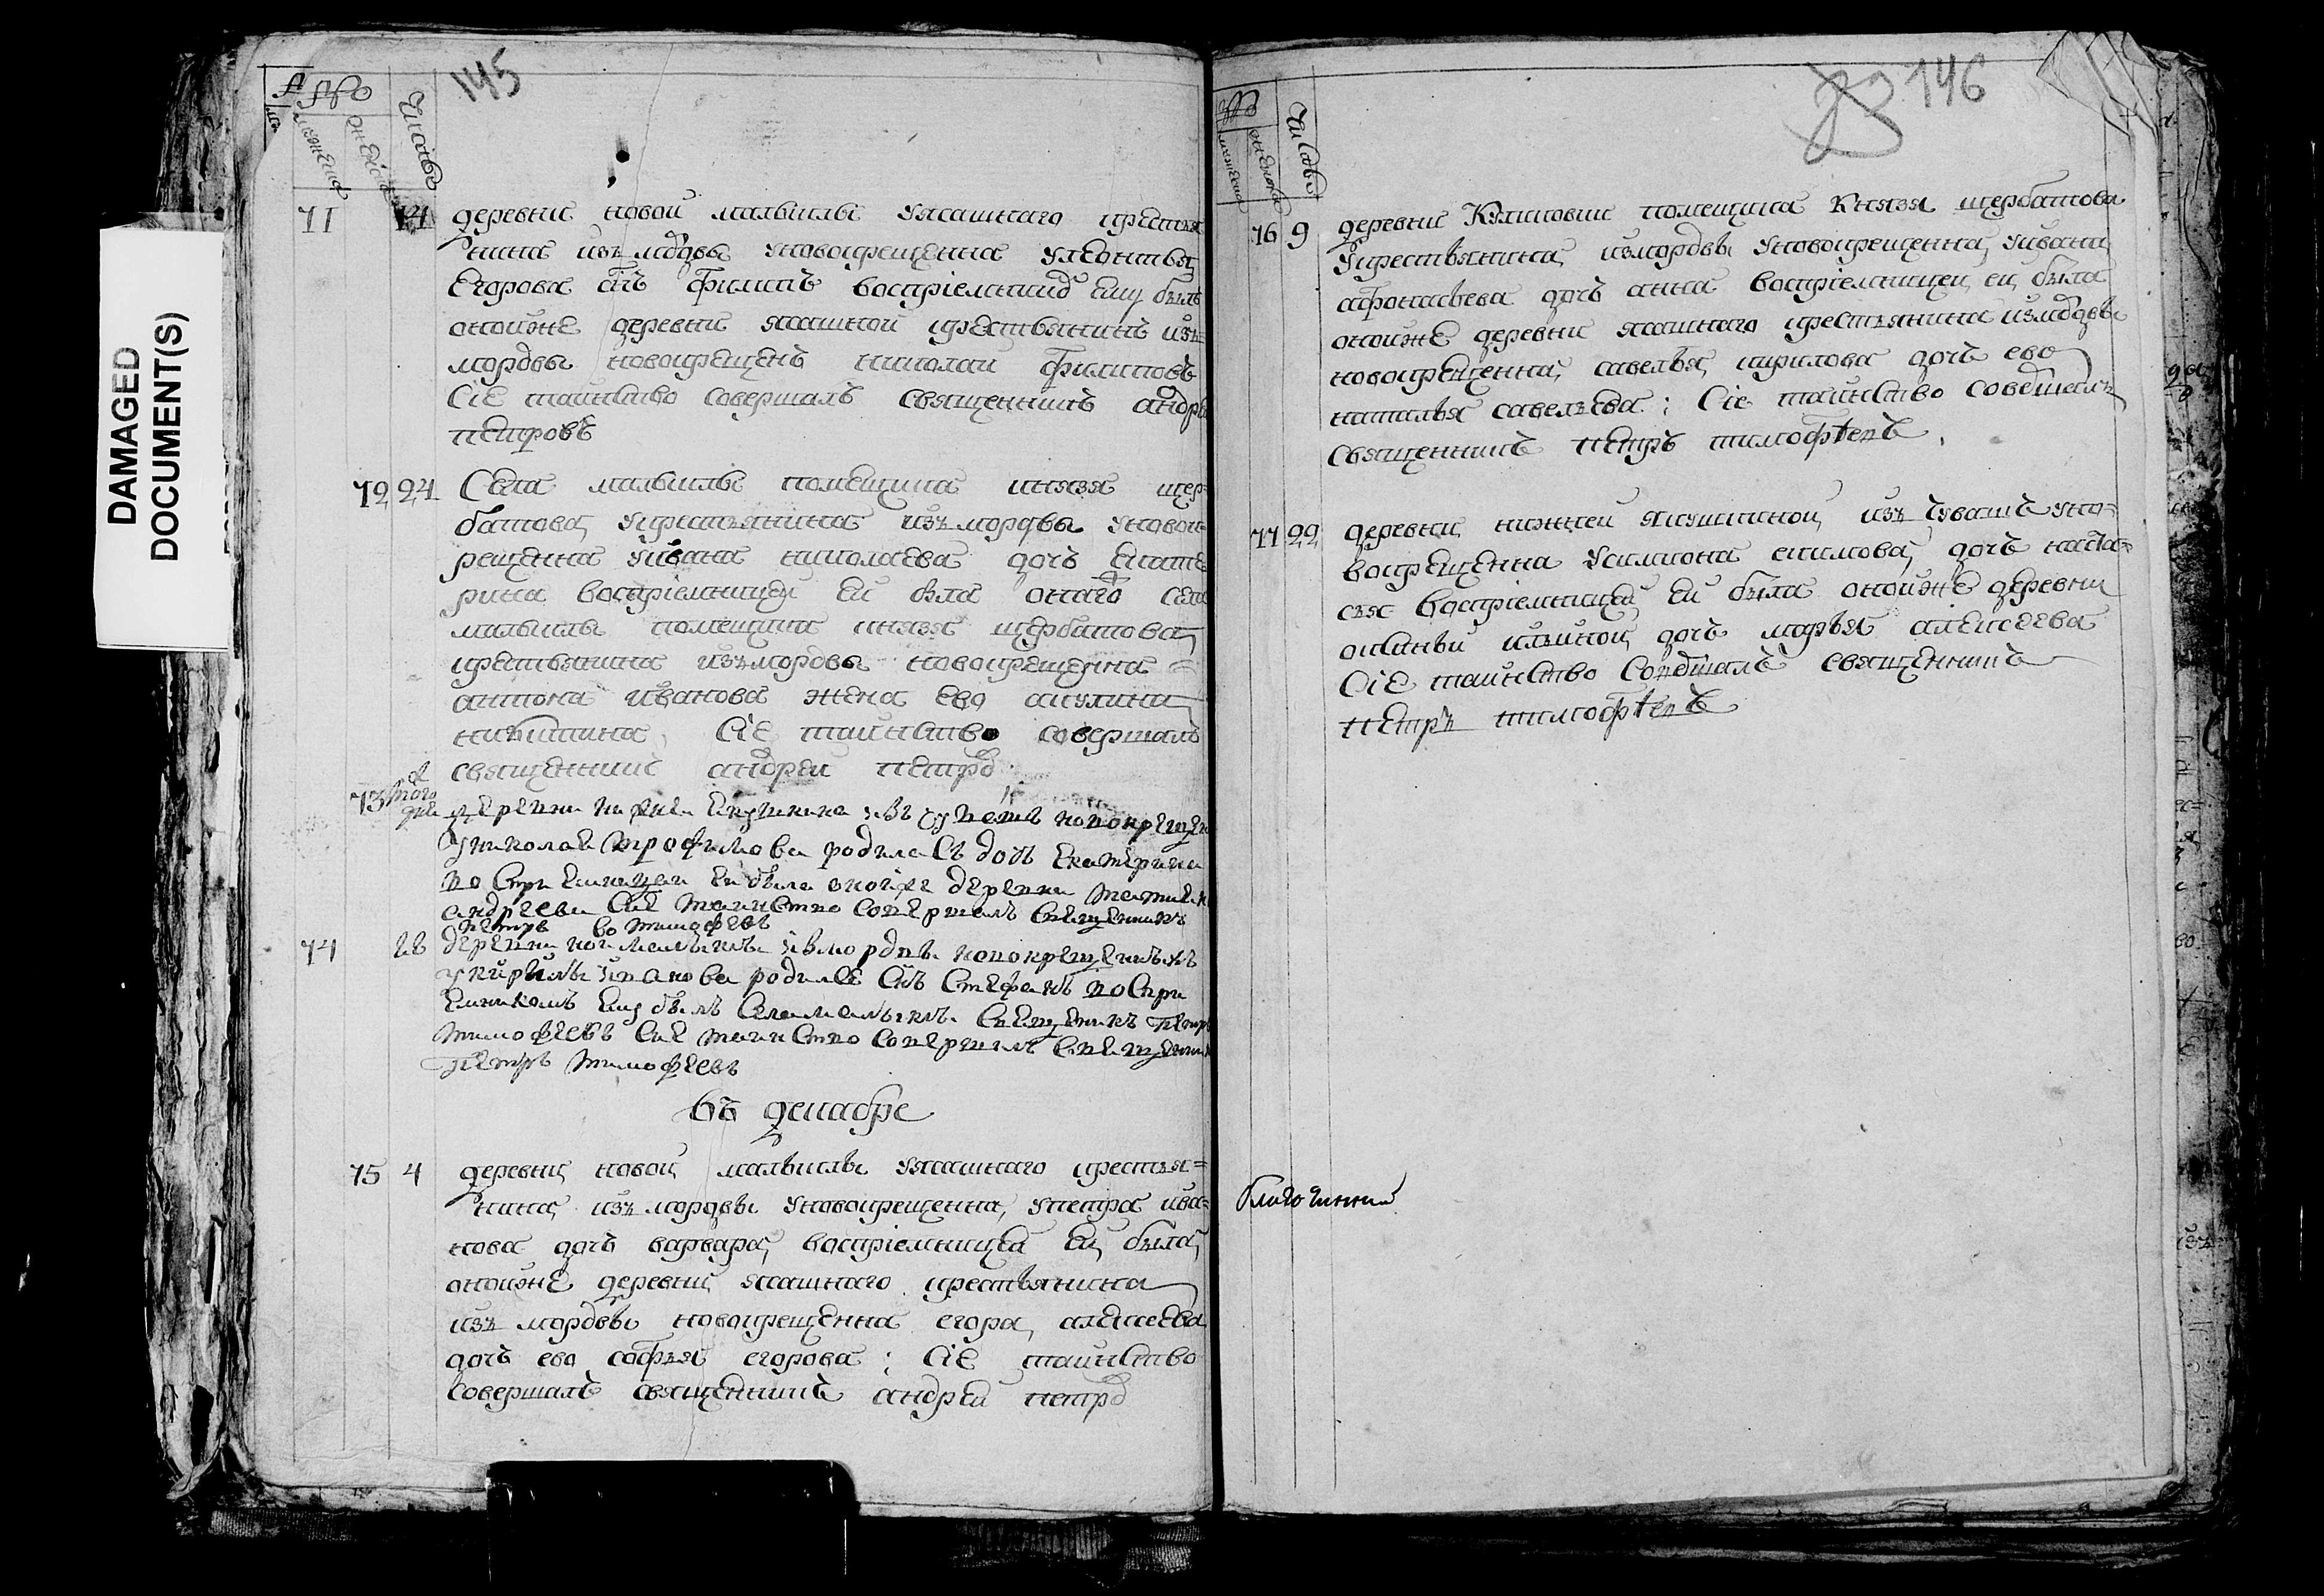 DAMAGED
DOCUMENT(S)
145
Число
71
деревни новой малыклы уясашнаго крестья
нина изъ мордвы уновокрещенна улеонтья
Егорова снъ филипъ восприемникъ ему былъ
оноиже деревни ясашной крестьянинъ изъ
мордвы новокрещенъ николаи филиповъ
Сie таинство совершалъ священникъ андреи
петровъ
72 24 Села малыклы помещика князя щер
батова укрестьянина изъ мордвы уновок
рещенна уивана николаева дочь екате
рина восприемницеи еи была онаго села
малыклы помещика князя щербатова
крестьянина изъмордвы новокрещенна
антона иванова жена ево акулина
никитина Сie таинство совершалъ
священникъ андреи петровъ
73 того
дни деревни якушкина изъ чувашъ новокрещен
Униколая трофимова родилась дочь екатерина
восприемницеи еи была оноиже деревни
андреева Сие таинство совершалъ священникъ
петръ тимофеевъ
74 28 деревни новой малыклы измордвы новокрещеныхъ
укирилы иванова родился снъ стефанъ воспри
емникомъ ему былъ села малыклы священникъ петръ
тимофеевъ Сие таинство совершалъ священникъ
петръ тимофеевъ
Въ декабре
75 4 деревни новой малыклы уясашнаго крестья=
нина изъ мордвы уновокрещенна упетра ива=
нова дочь варвара восприемницеи еи была
оноиже деревни ясашнаго крестьянина
изъ мордвы новокрещенна егора алексеева
дочь ево софья егорова ; Сie таинство
совершалъ священникъ андреи петровъ
146
Число
76 9 деревни Куликовки помещика Князя щербатова
укрестьянина измордвы уновокрещенна уивана
афонасьева дочь анна восприемницеи еи была
оноиже деревни ясашнаго крестьянина измордвы
новокрещенна савелья кирилова дочь ево
наталья савельева ; Сie таинство совершалъ
священникъ петръ тимофѣевъ
77 22 деревни нижнеи якушкиной изъ чувашъ уно=
вокрещенна усимиона екимова дочь наста=
сья восприемницеи еи была оноиже деревни
аксиньи ильиной дочь марья алексеева
Сie таинство совершалъ священникъ
петръ тимофѣевъ
благочинный